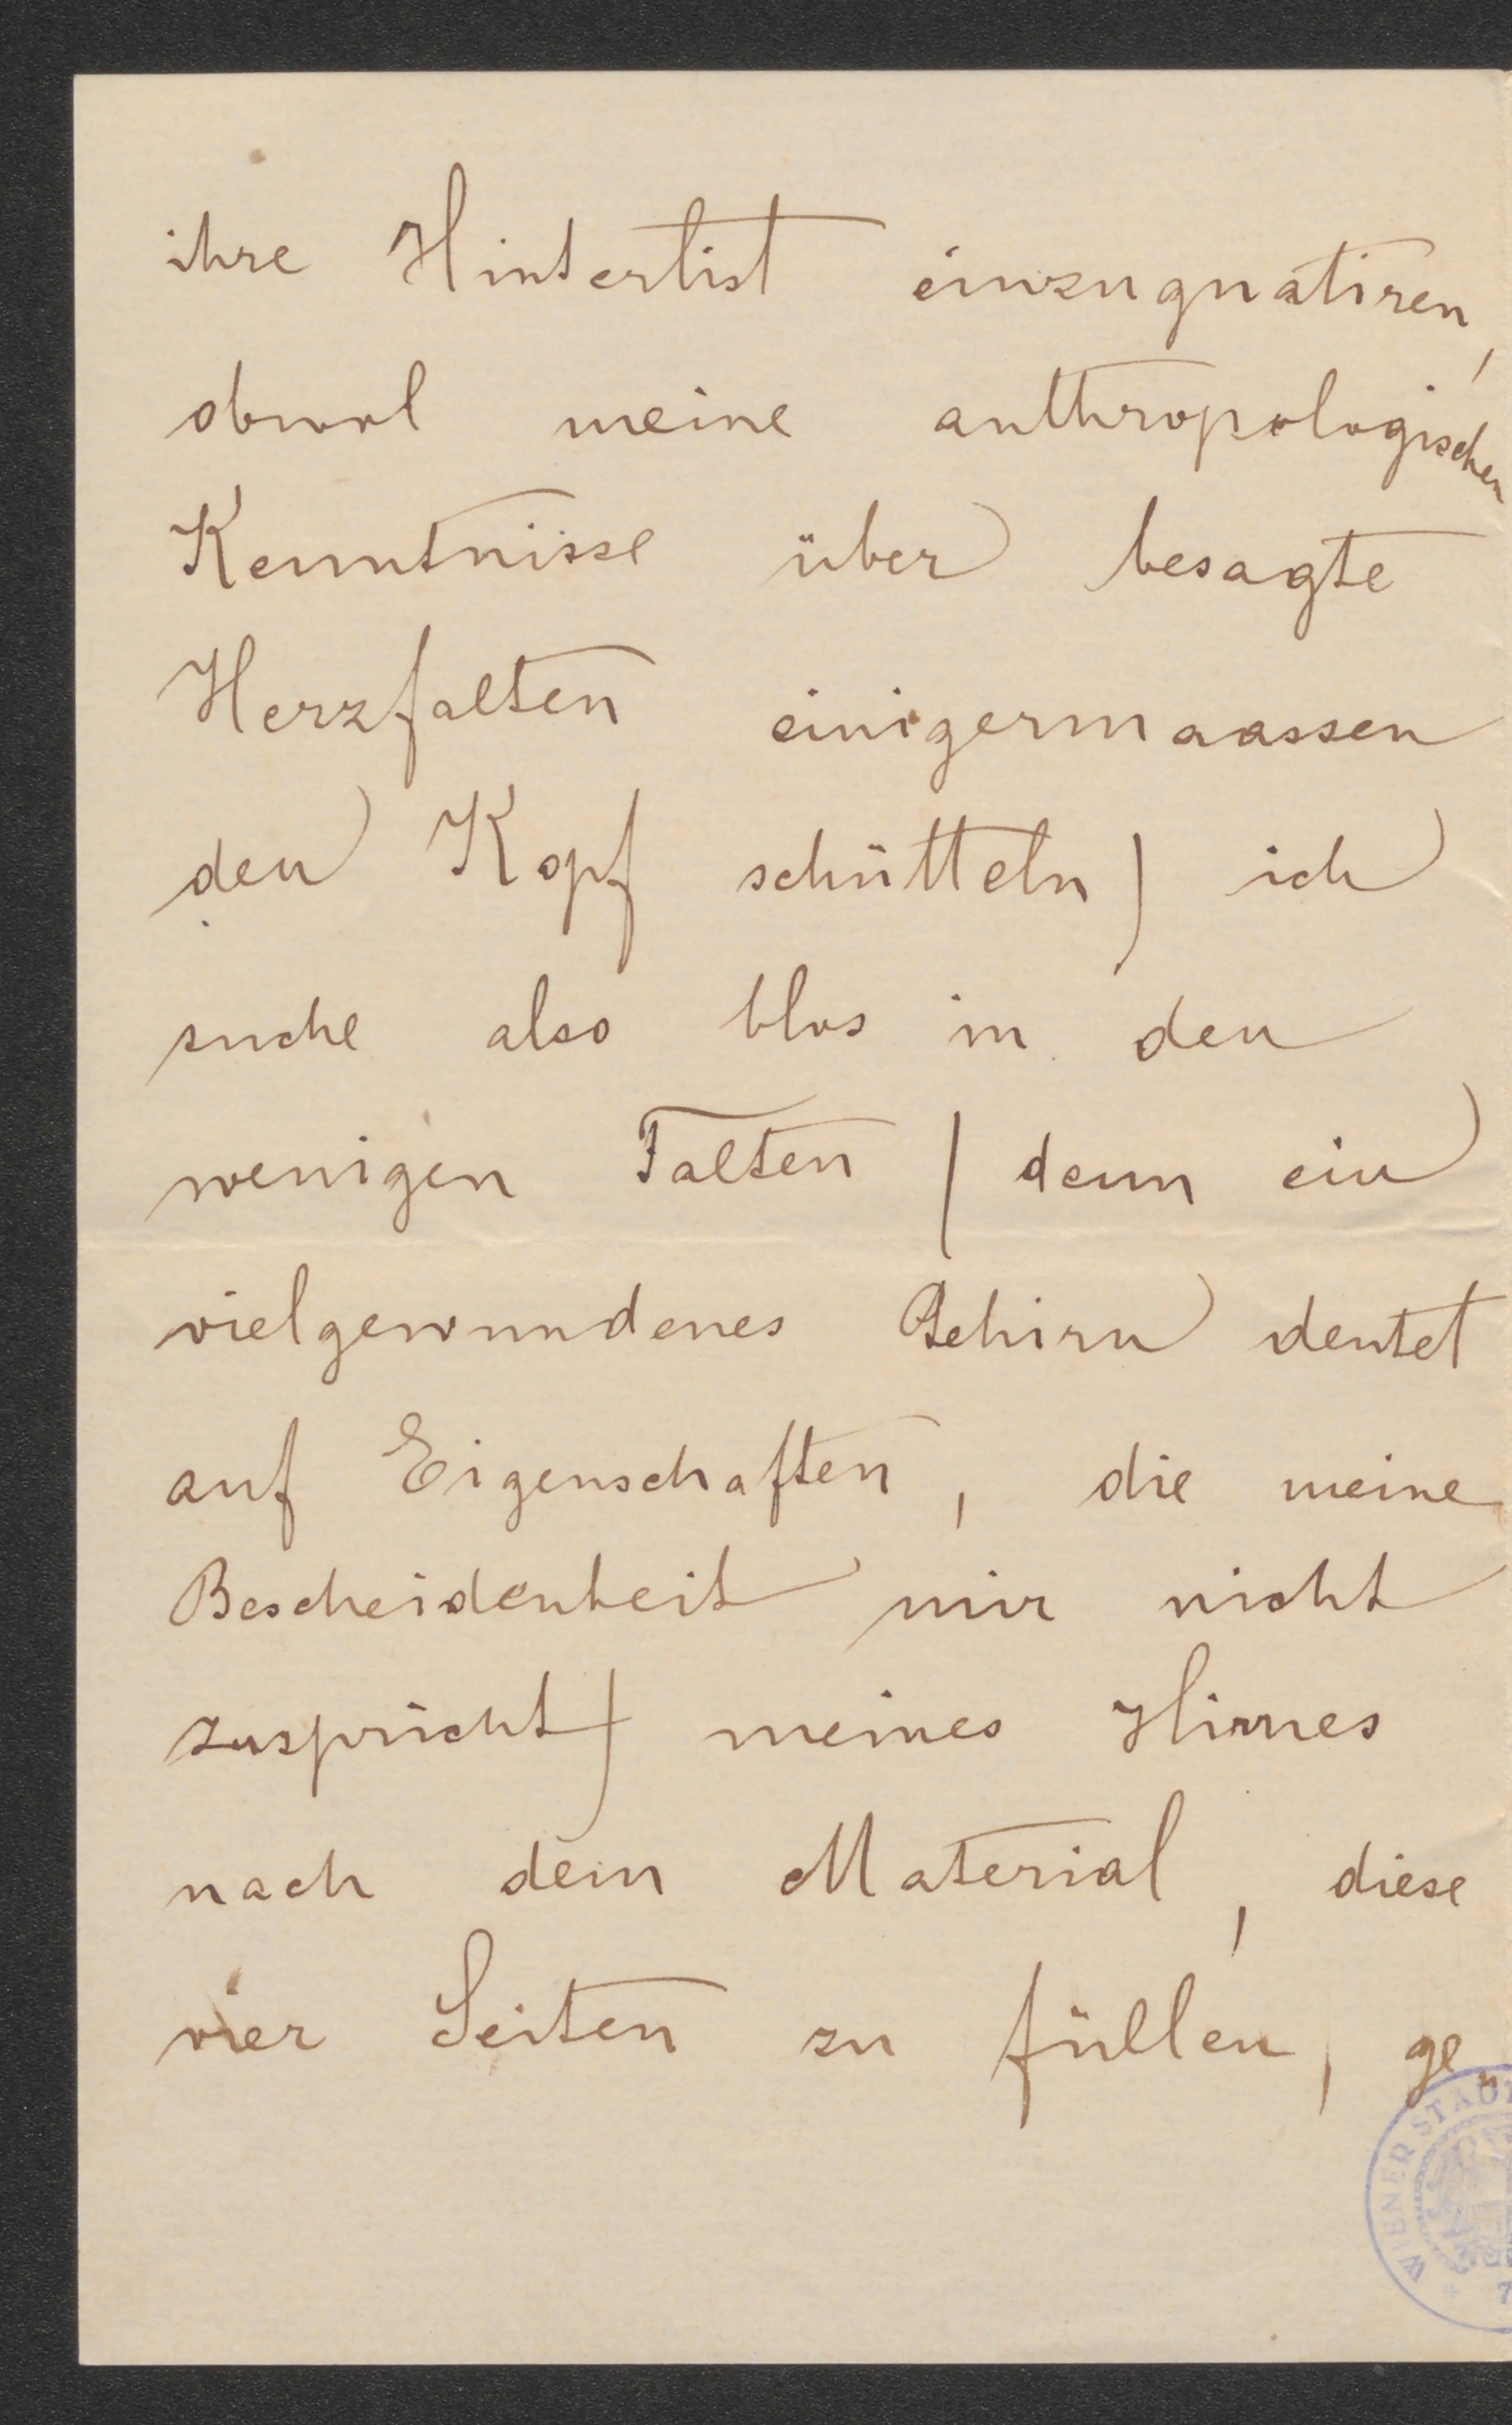 ihre Hinterlist einzugnatiren,
obwol meine anthropologischen
Kenntnisse über besagte
Herzfalten einigermaassen
den Kopf schütteln) ich
suche also blos in den
wenigen Falten (denn ein
vielgewundenes Gehirn deutet
auf Eigenschaften, die meine
Bescheidenheit mir nicht
zuspricht) meines Hirnes
nach dem Material, diese
vier Seiten zu füllen, ge
WIENER STADT
7